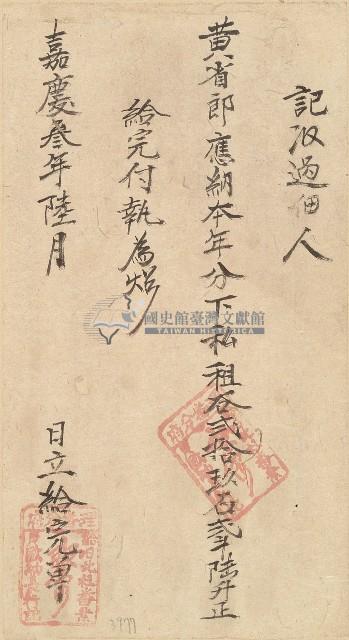 記收過佃人
黃省郎應納本年分下私租谷貳拾玖石貳斗陸升正
給完付執為炤
嘉慶叁年陸月
日立給完單
國史館臺灣文獻館
TAIWAN HISTORICA
3977